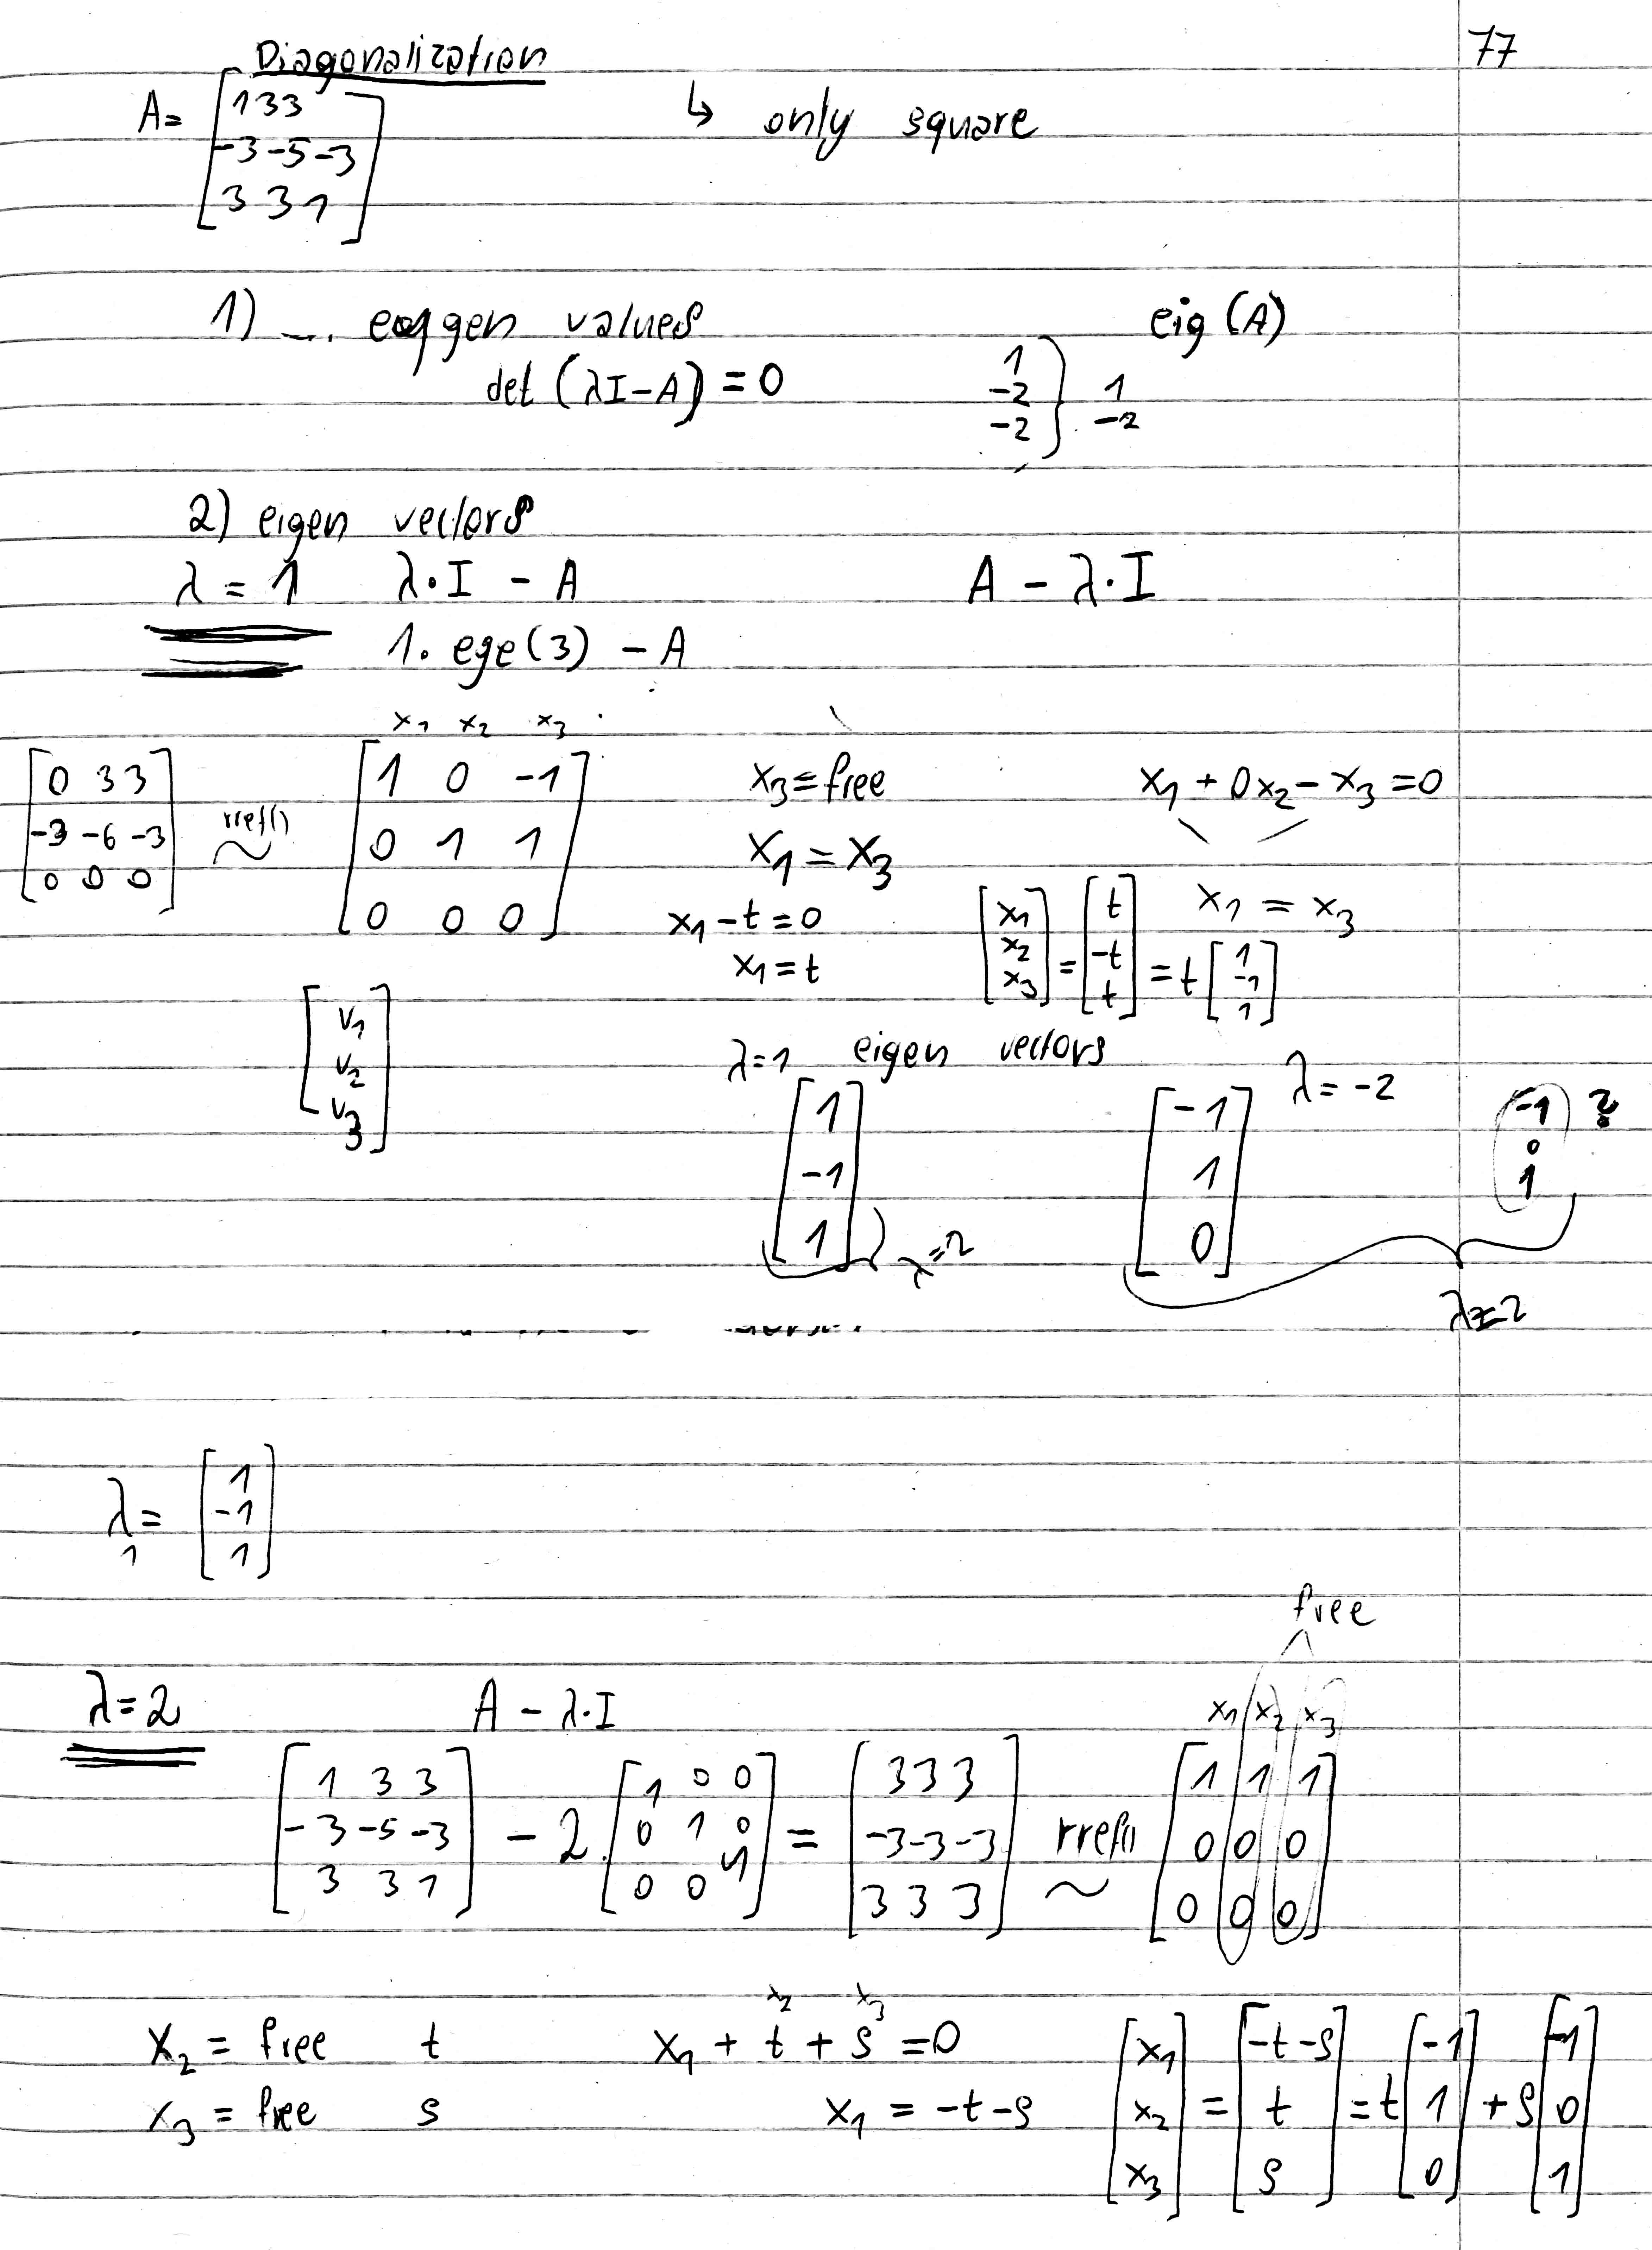 77
Diagonalization
A = [1 3 3
-3 -5 -3
3 3 1]
↳ only square
1) ... eaggen values eig (A)
det (λI-A) = 0
1
-2
-2 } 1
-2
2) eigen vectors
λ = 1 λ·I - A A - λ·I
1. ege(3) - A
x1 x2 x3
[0 3 3
-3 -6 -3
0 0 0] rref() ~ [1 0 -1
0 1 1
0 0 0]
x3 = free x1 + 0x2 - x3 = 0
x1 = x3
x1 - t = 0 x1 = x3
x1 = t
[x1
x2
x3] = [t
-t
t] = t [1
-1
1]
[v1
v2
v3]
λ=1 eigen vectors λ = -2
[1
-1
1] λ=2
[-1
1
0]
(-1
0
1) ?
λ=2
λ1 = [1
-1
1]
free
λ=2 A - λ·I
x1 x2 x3
[1 3 3
-3 -5 -3
3 3 1] - 2. [1 0 0
0 1 0
0 0 1] = [3 3 3
-3 -3 -3
3 3 3] rref() ~ [1 1 1
0 0 0
0 0 0]
x2 x3
x2 = free t x1 + t + s = 0
x3 = free s x1 = -t-s
[x1
x2
x3] = [-t-s
t
s] = t [-1
1
0] + s [-1
0
1]